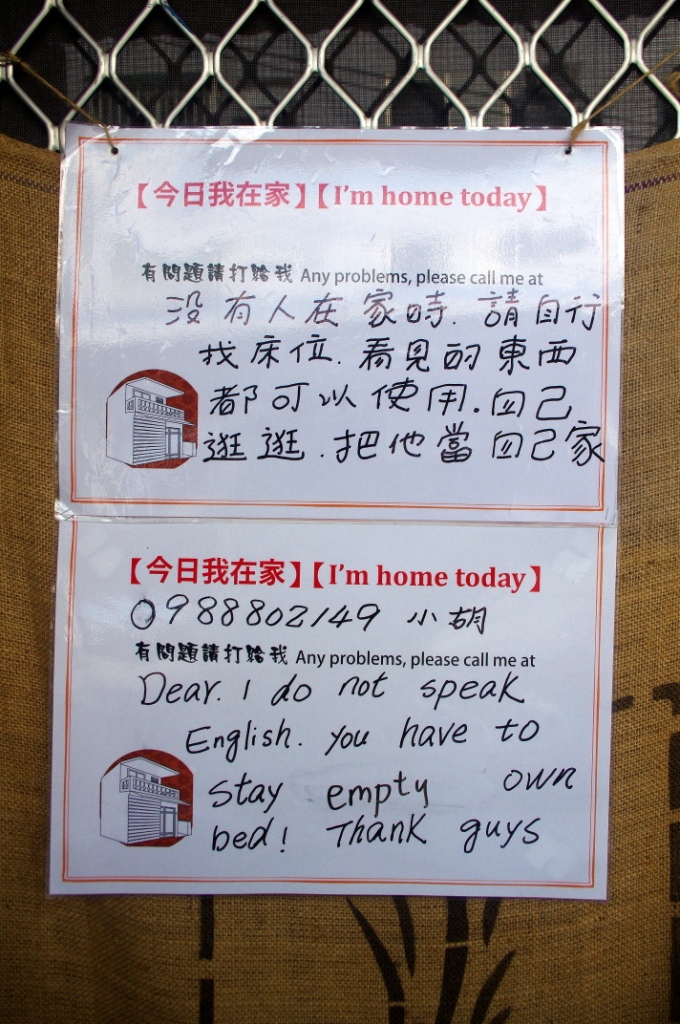 【今日我在家】【I'm home today】
有問題請打給我 Any problems, please call me at
没有人在家時.請自行
找床位.看見的東西
都可以使用.自己
逛逛.把他當自己家
【今日我在家】【I'm home today】
0988802149 小胡
有問題請打給我 Any problems, please call me at
Dear. I do not speak
English. you have to
stay empty own
bed! Thank guys